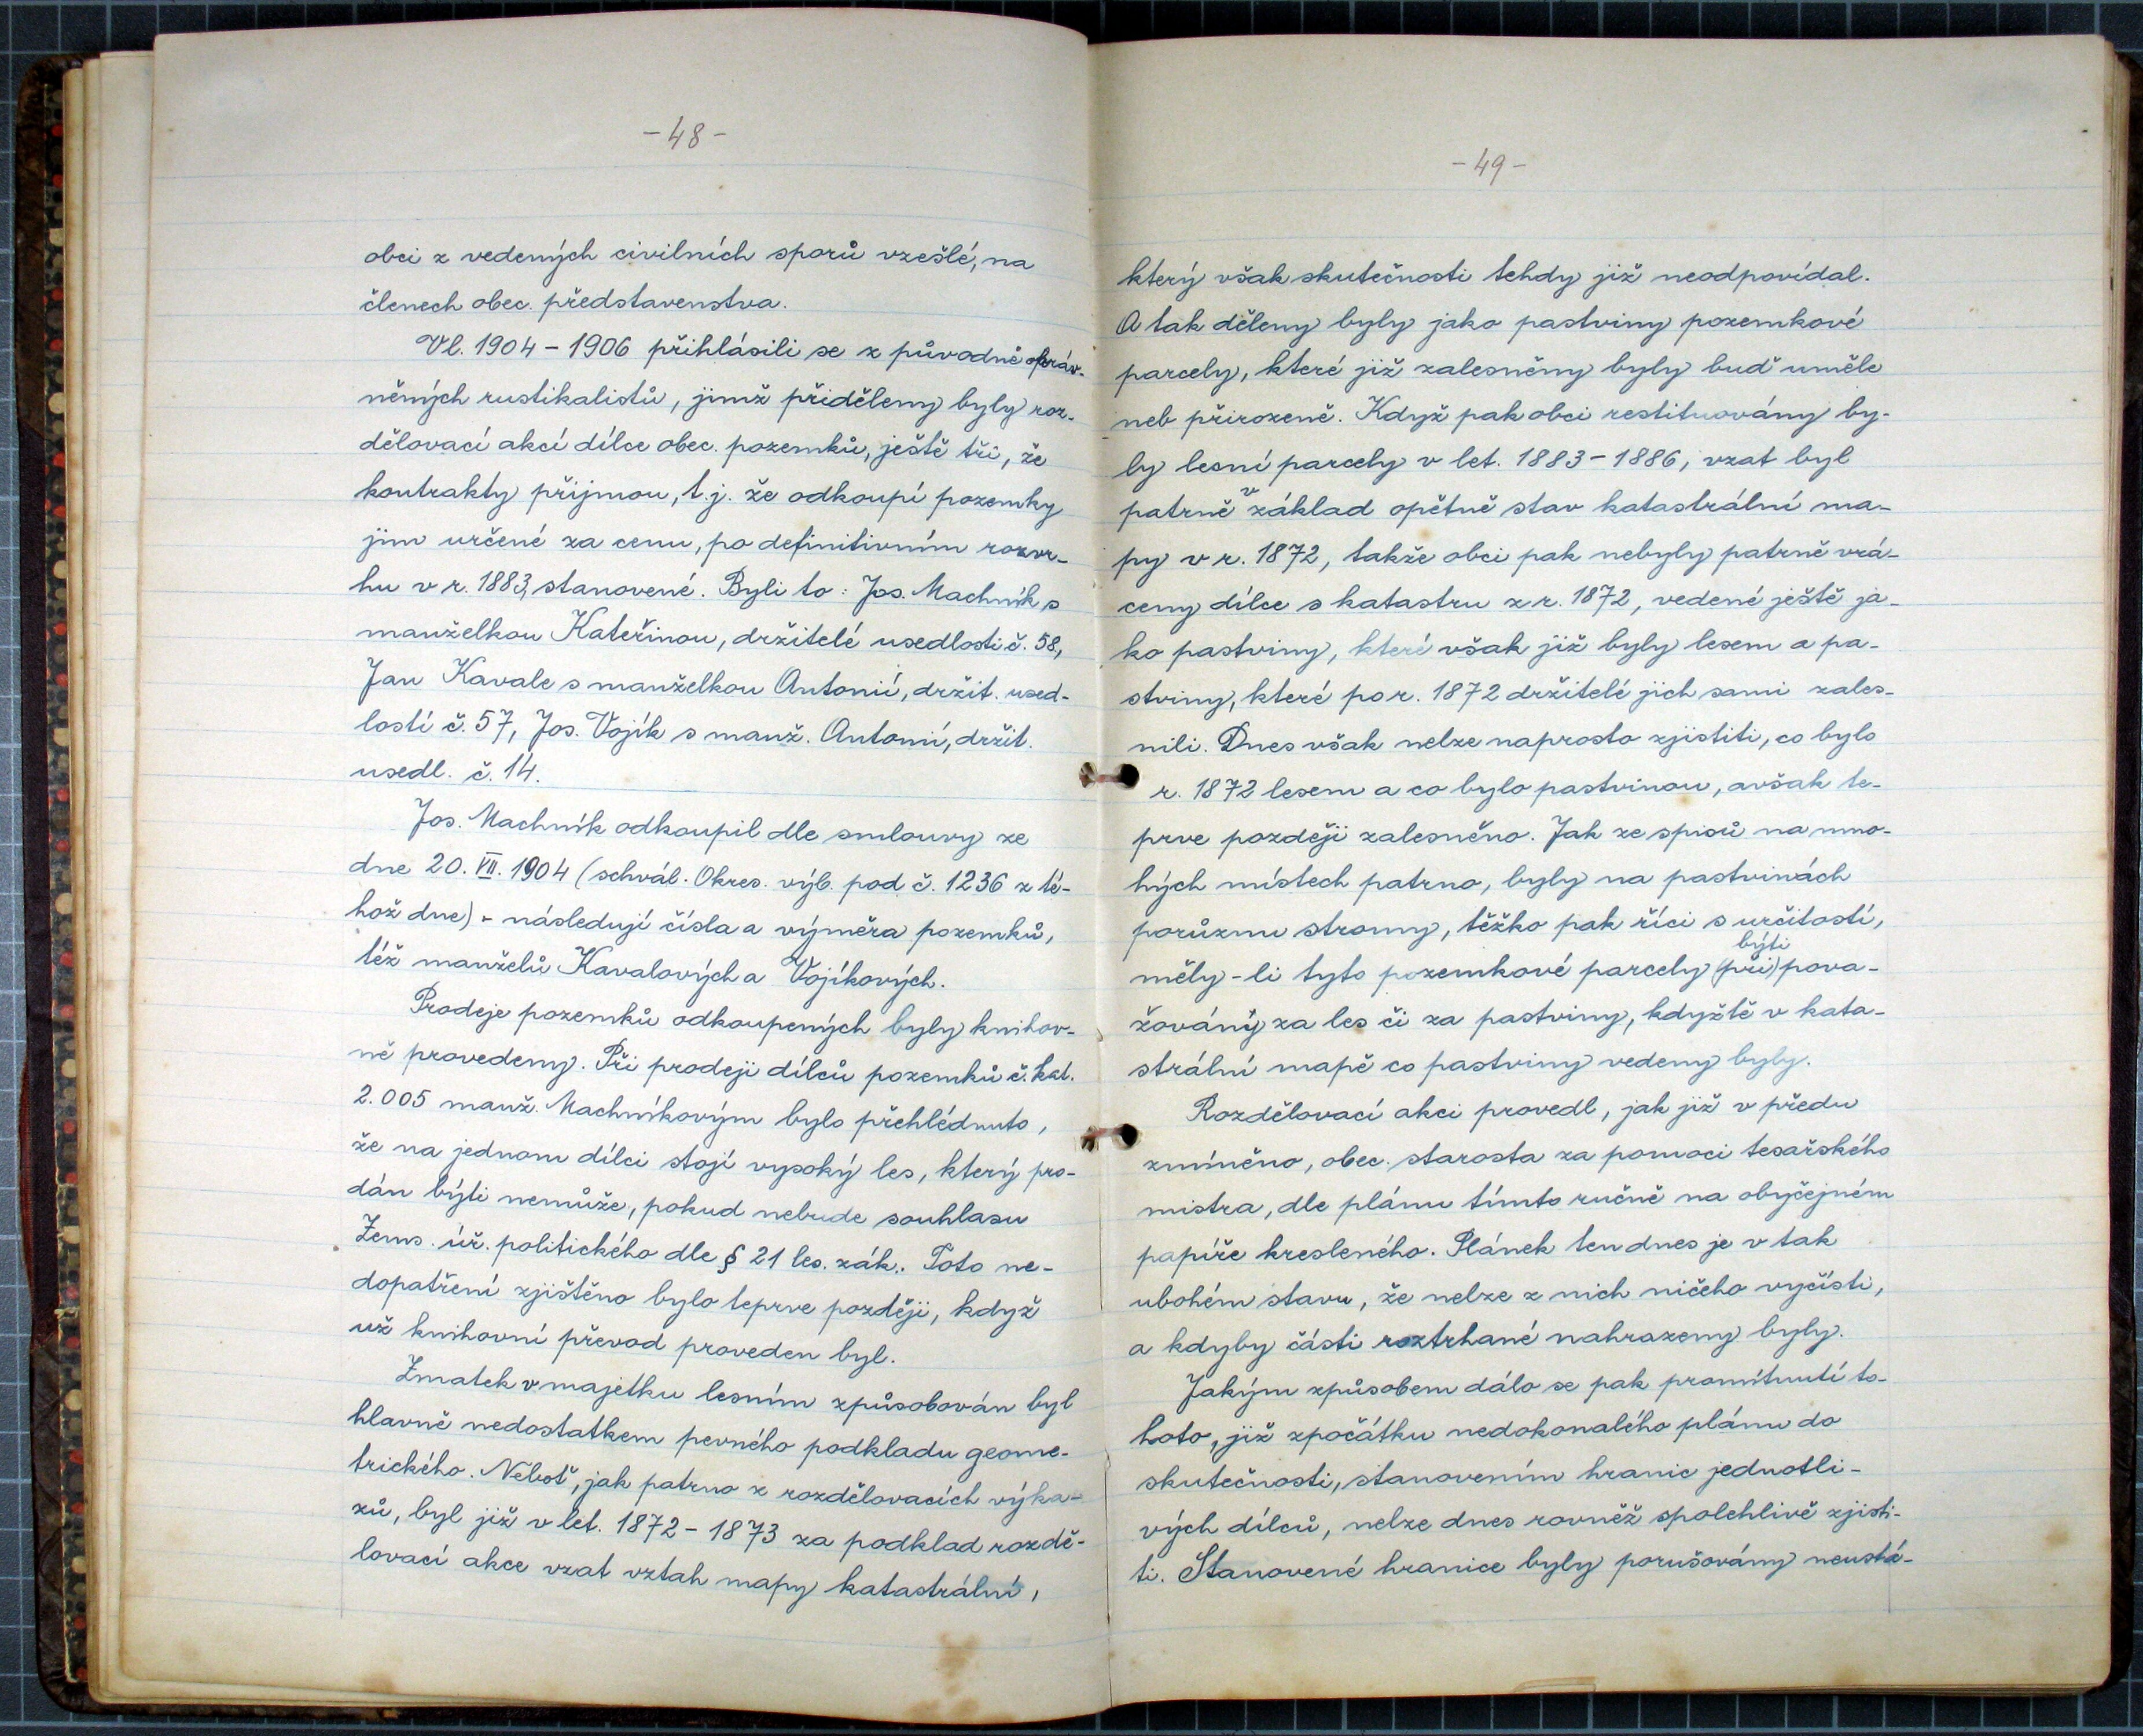 -48-
obci z vedených civilních sporů vzešlé, na
členech obec. představenstva.
Vl. 1904-1906 přihlásili se z původně opráv-
něných rustikalistů, jimž přiděleny byly roz-
dělovací akcí dílce obec. pozemků, ještě tři, že
kontrakty přijmou, t.j. že odkoupí pozemky
jim určené za cenu, po definitivním rozvr-
hu v r. 1883, stanovené. Byli to: Jos. Machník s
manželkou Kateřinou, držitelé usedlosti č. 58,
Jan Kavale s manželkou Antonií, držit. used-
lostí č. 57, Jos. Vojík s manž. Antonií, držit.
usedl. č. 14.
Jos. Machník odkoupil dle smlouvy ze
dne 20. VII. 1904 (schvál. Okres. výb. pod č. 1236 z té-
hož dne) - následují čísla a výměra pozemků,
též manželů Kavalových a Vojíkových.
Prodeje pozemků odkoupených byly knihov-
ně provedeny. Při prodeji dílců pozemků č. kat.
2.005 manž. Machníkovým bylo přehlédnuto,
že na jednom dílci stojí vysoký les, který pro-
dán býti nemůže, pokud nebude souhlasu
Zems. úř. politického dle § 21 les. zák.. Toto ne-
dopatření zjištěno bylo teprve později, když
už knihovní převod proveden byl.
Zmatek v majetku lesním způsobován byl
hlavně nedostatkem pevného podkladu geome-
trického. Neboť, jak patrno z rozdělovacích výka-
zů, byl již v let. 1872-1873 za podklad rozdě-
lovací akce vzat vztah mapy katastrální,
-49-
který však skutečnosti tehdy již neodpovídal.
A tak děleny byly jako pastviny pozemkové
parcely, které již zalesněny byly buď uměle
neb přirozeně. Když pak obci restituovány by-
ly lesní parcely v let. 1883-1886, vzat byl
patrně v základ opětně stav katastrální ma-
py v r. 1872, takže obci pak nebyly patrně vrá-
ceny dílce s katastru z r. 1872, vedené ještě ja-
ko pastviny, které však již byly lesem a pa-
stviny, které po r. 1872 držitelé jich sami zales-
nili. Dnes však nelze naprosto zjistiti, co bylo
r. 1872 lesem a co bylo pastvinou, avšak te-
prve později zalesněno. Jak ze spisů na mno-
hých místech patrno, byly na pastvinách
porůznu stromy, těžko pak říci s určitostí,
býti
měly-li tyto pozemkové parcely (při) pova-
žovány za les či za pastviny, kdyžtě v kata-
strální mapě co pastviny vedeny byly.
Rozdělovací akci provedl, jak již v předu
zmíněno, obec. starosta za pomoci tesařského
mistra, dle plánu tímto ručně na obyčejném
papíře kresleného. Plánek ten dnes je v tak
ubohém stavu, že nelze z nich ničeho vyčísti,
a kdyby části roztrhané nahrazeny byly.
Jakým způsobem dálo se pak promítnutí to-
hoto, již zpočátku nedokonalého plánu do
skutečnosti, stanovením hranic jednotli-
vých dílců, nelze dnes rovněž spolehlivě zjisti-
ti. Stanovené hranice byly porušovány neustá-